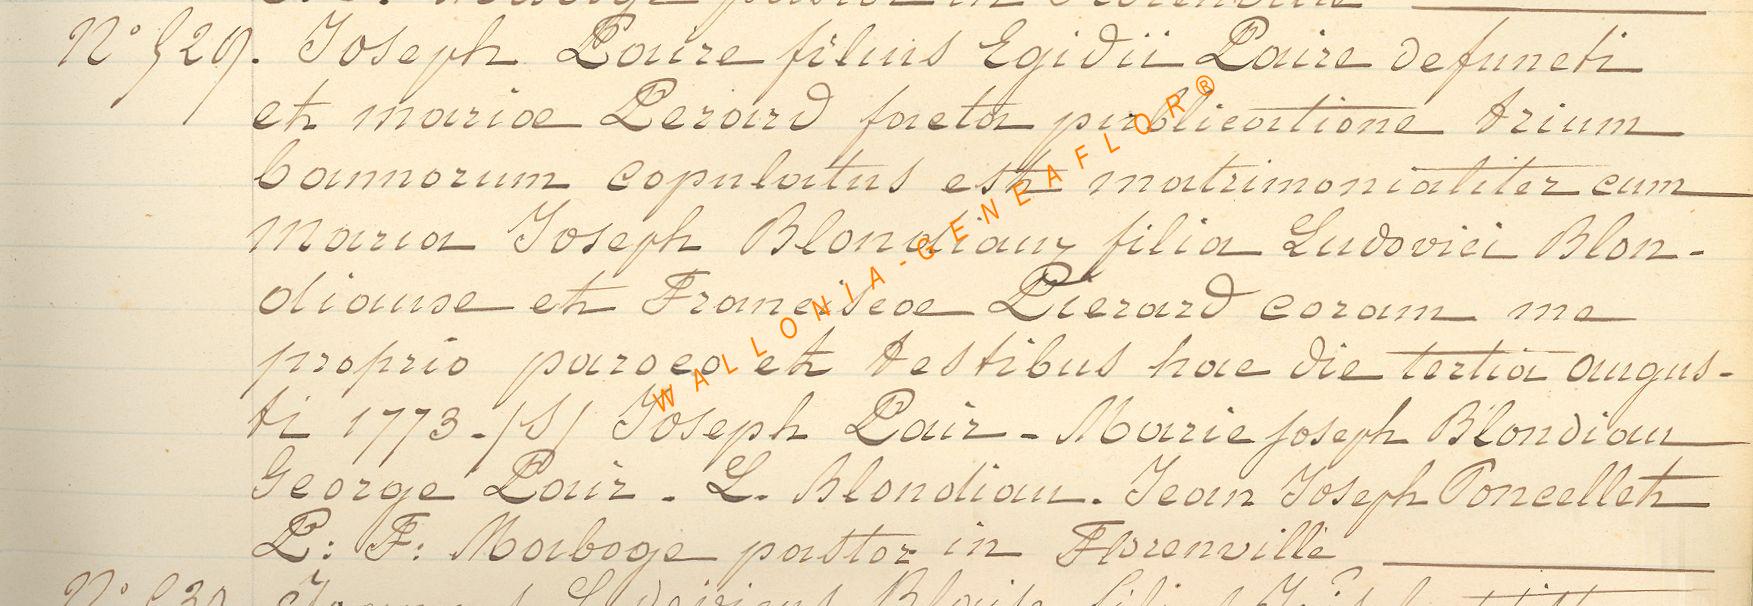 N° 529. Joseph Paire filius Egidii Paire defuncti
et mariæ Perard facta publicatione trium
bannorum copulatus est matrimonialiter cum
Maria Joseph Blondiaux filia Ludovici Blon-
diause et Franciscæ Pierard coram me
proprio paroco et testibus hac die tertia augus-
ti 1773. /S/ Joseph Pair - Marie joseph Blondiau
George Pair - L. Blondiau. Jean Joseph Poncellet
P: F: Maboge pastor in Florenville
N° 530
WALLONIA-GENEAFLOR®